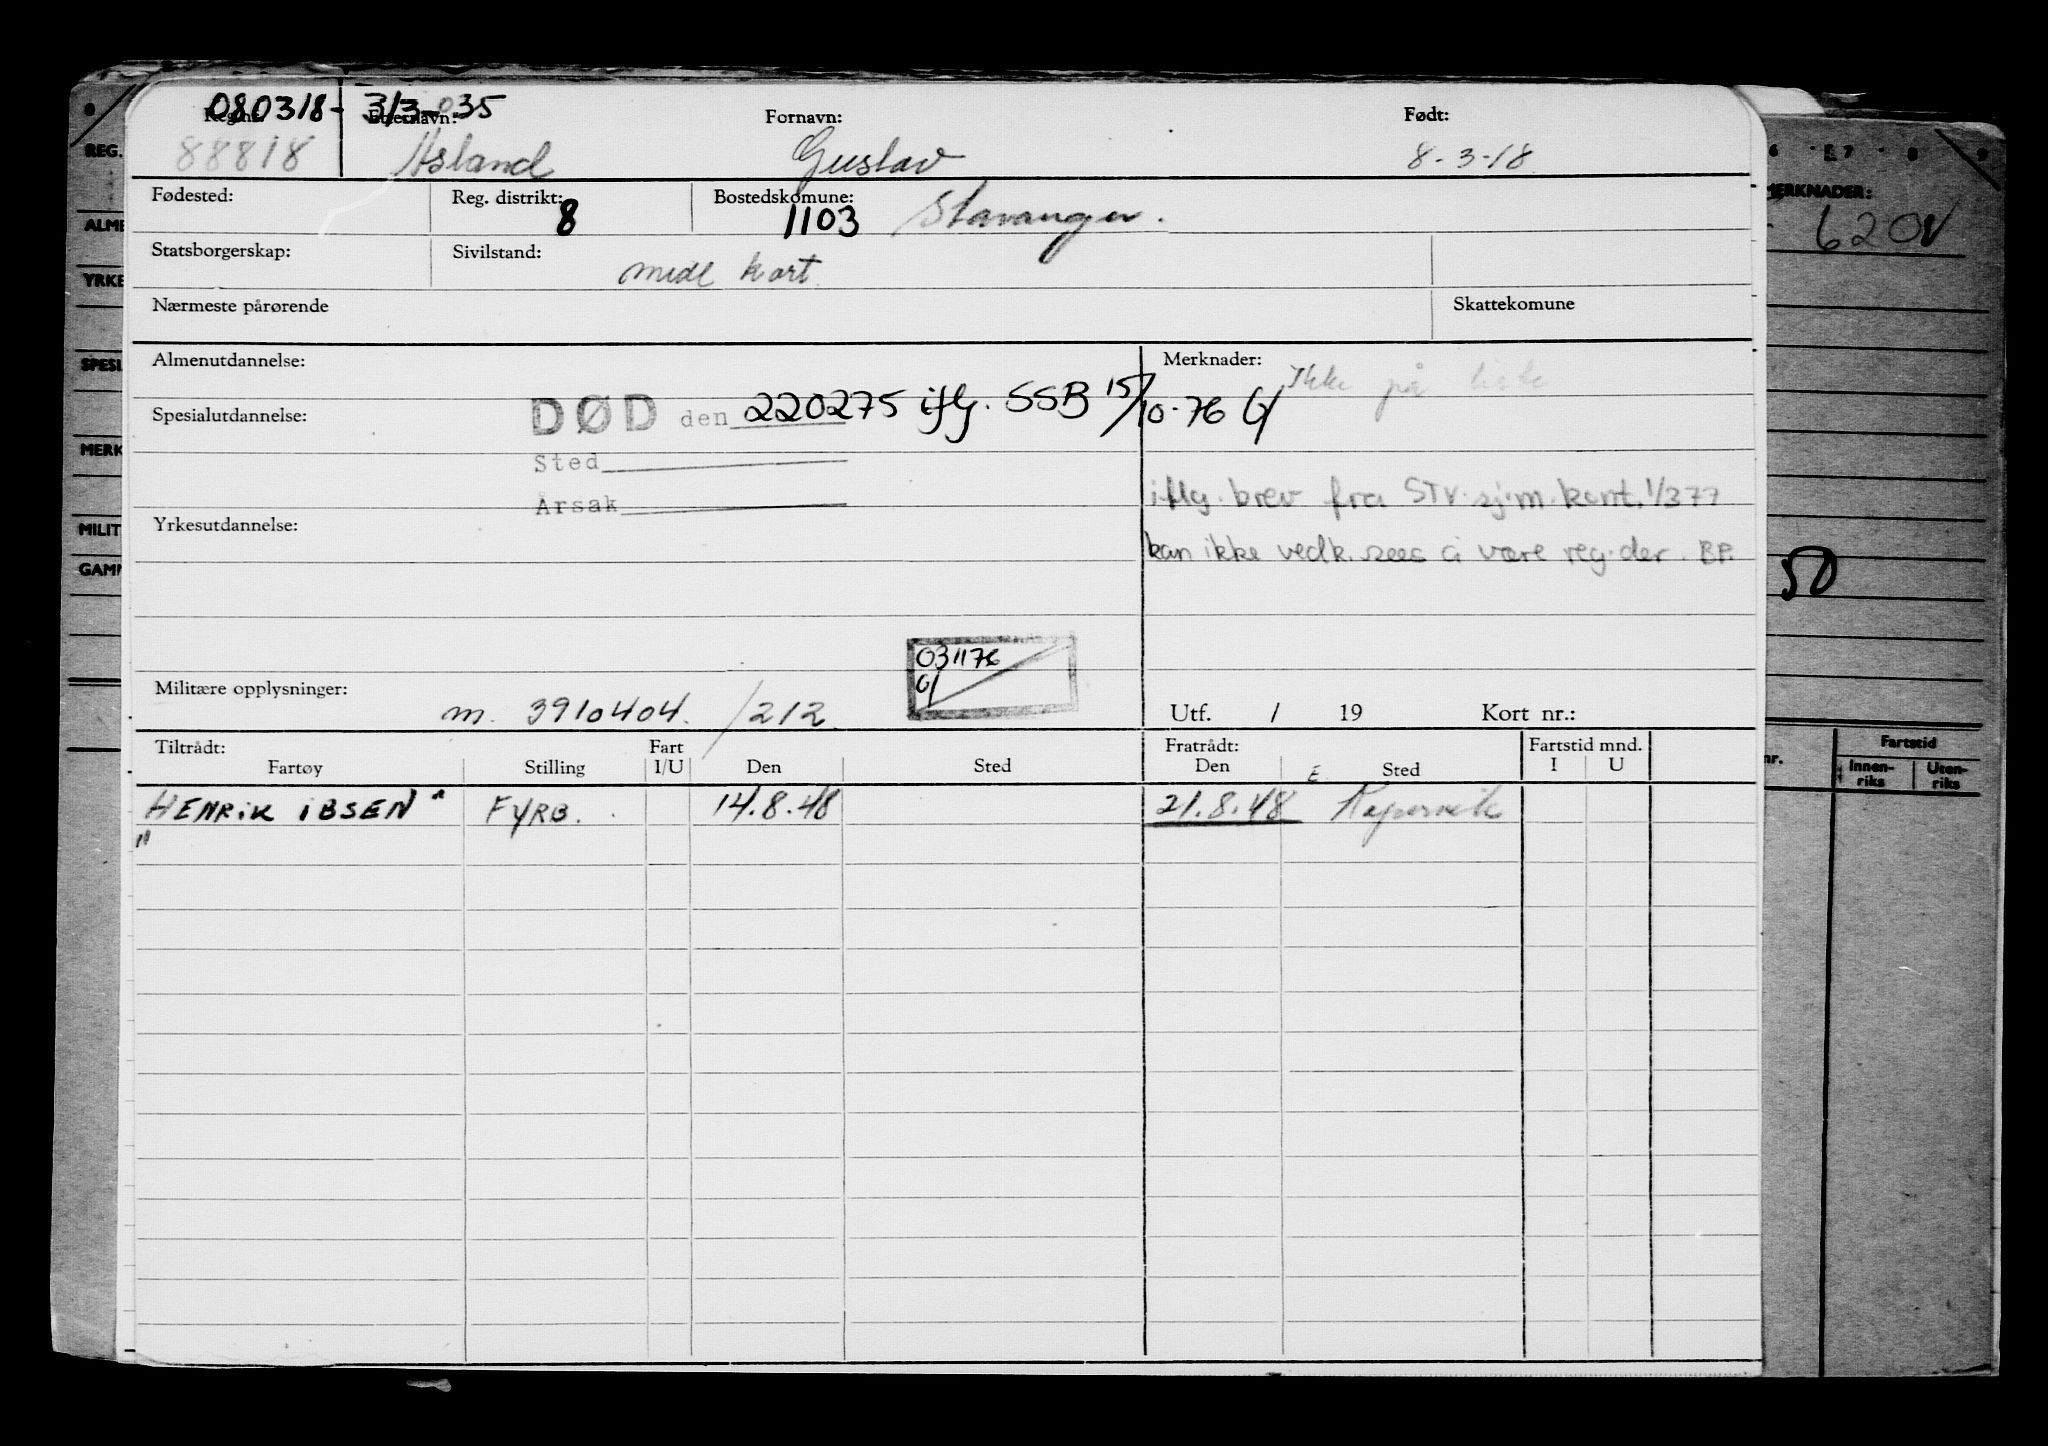 080318- 3/3 035
Reg.nr. Etternavn: Fornavn: Født:
88818 Åsland Gustav 8-3-18
Fødested: Reg. distrikt: 8 Bostedskomune: 1103 Stavanger.
Statsborgerskap: Sivilstand: midl kort.
Nærmeste pårørende Skattekomune
Almenutdannelse: Merknader: Ikke på liste
Spesialutdannelse: DØD den 220275 iflg. SSB 15/10-76
Sted
Årsak
iflg. brev fra STV. sj.m.kont. 1/3 77
Yrkesutdannelse:
kan ikke vedk. sees å være reg. der. BP.
031176
Militære opplysninger: m. 3910404. /212. Utf. / 19 Kort nr.:
Tiltrådt: Fart Fratrådt: Fartstid mnd.
Fartøy Stilling I/U Den Sted Den E Sted I U
HENRIK IBSEN " FYRB. 14.8.48 21.8.48 Kopervik
"
REG.
ALME
YRKE
SPESI
MERK
MILIT
GAM
6 7 8 9
MERKNADER:
620
50
nr. Fartstid
Innen-
riks
Uten-
riks